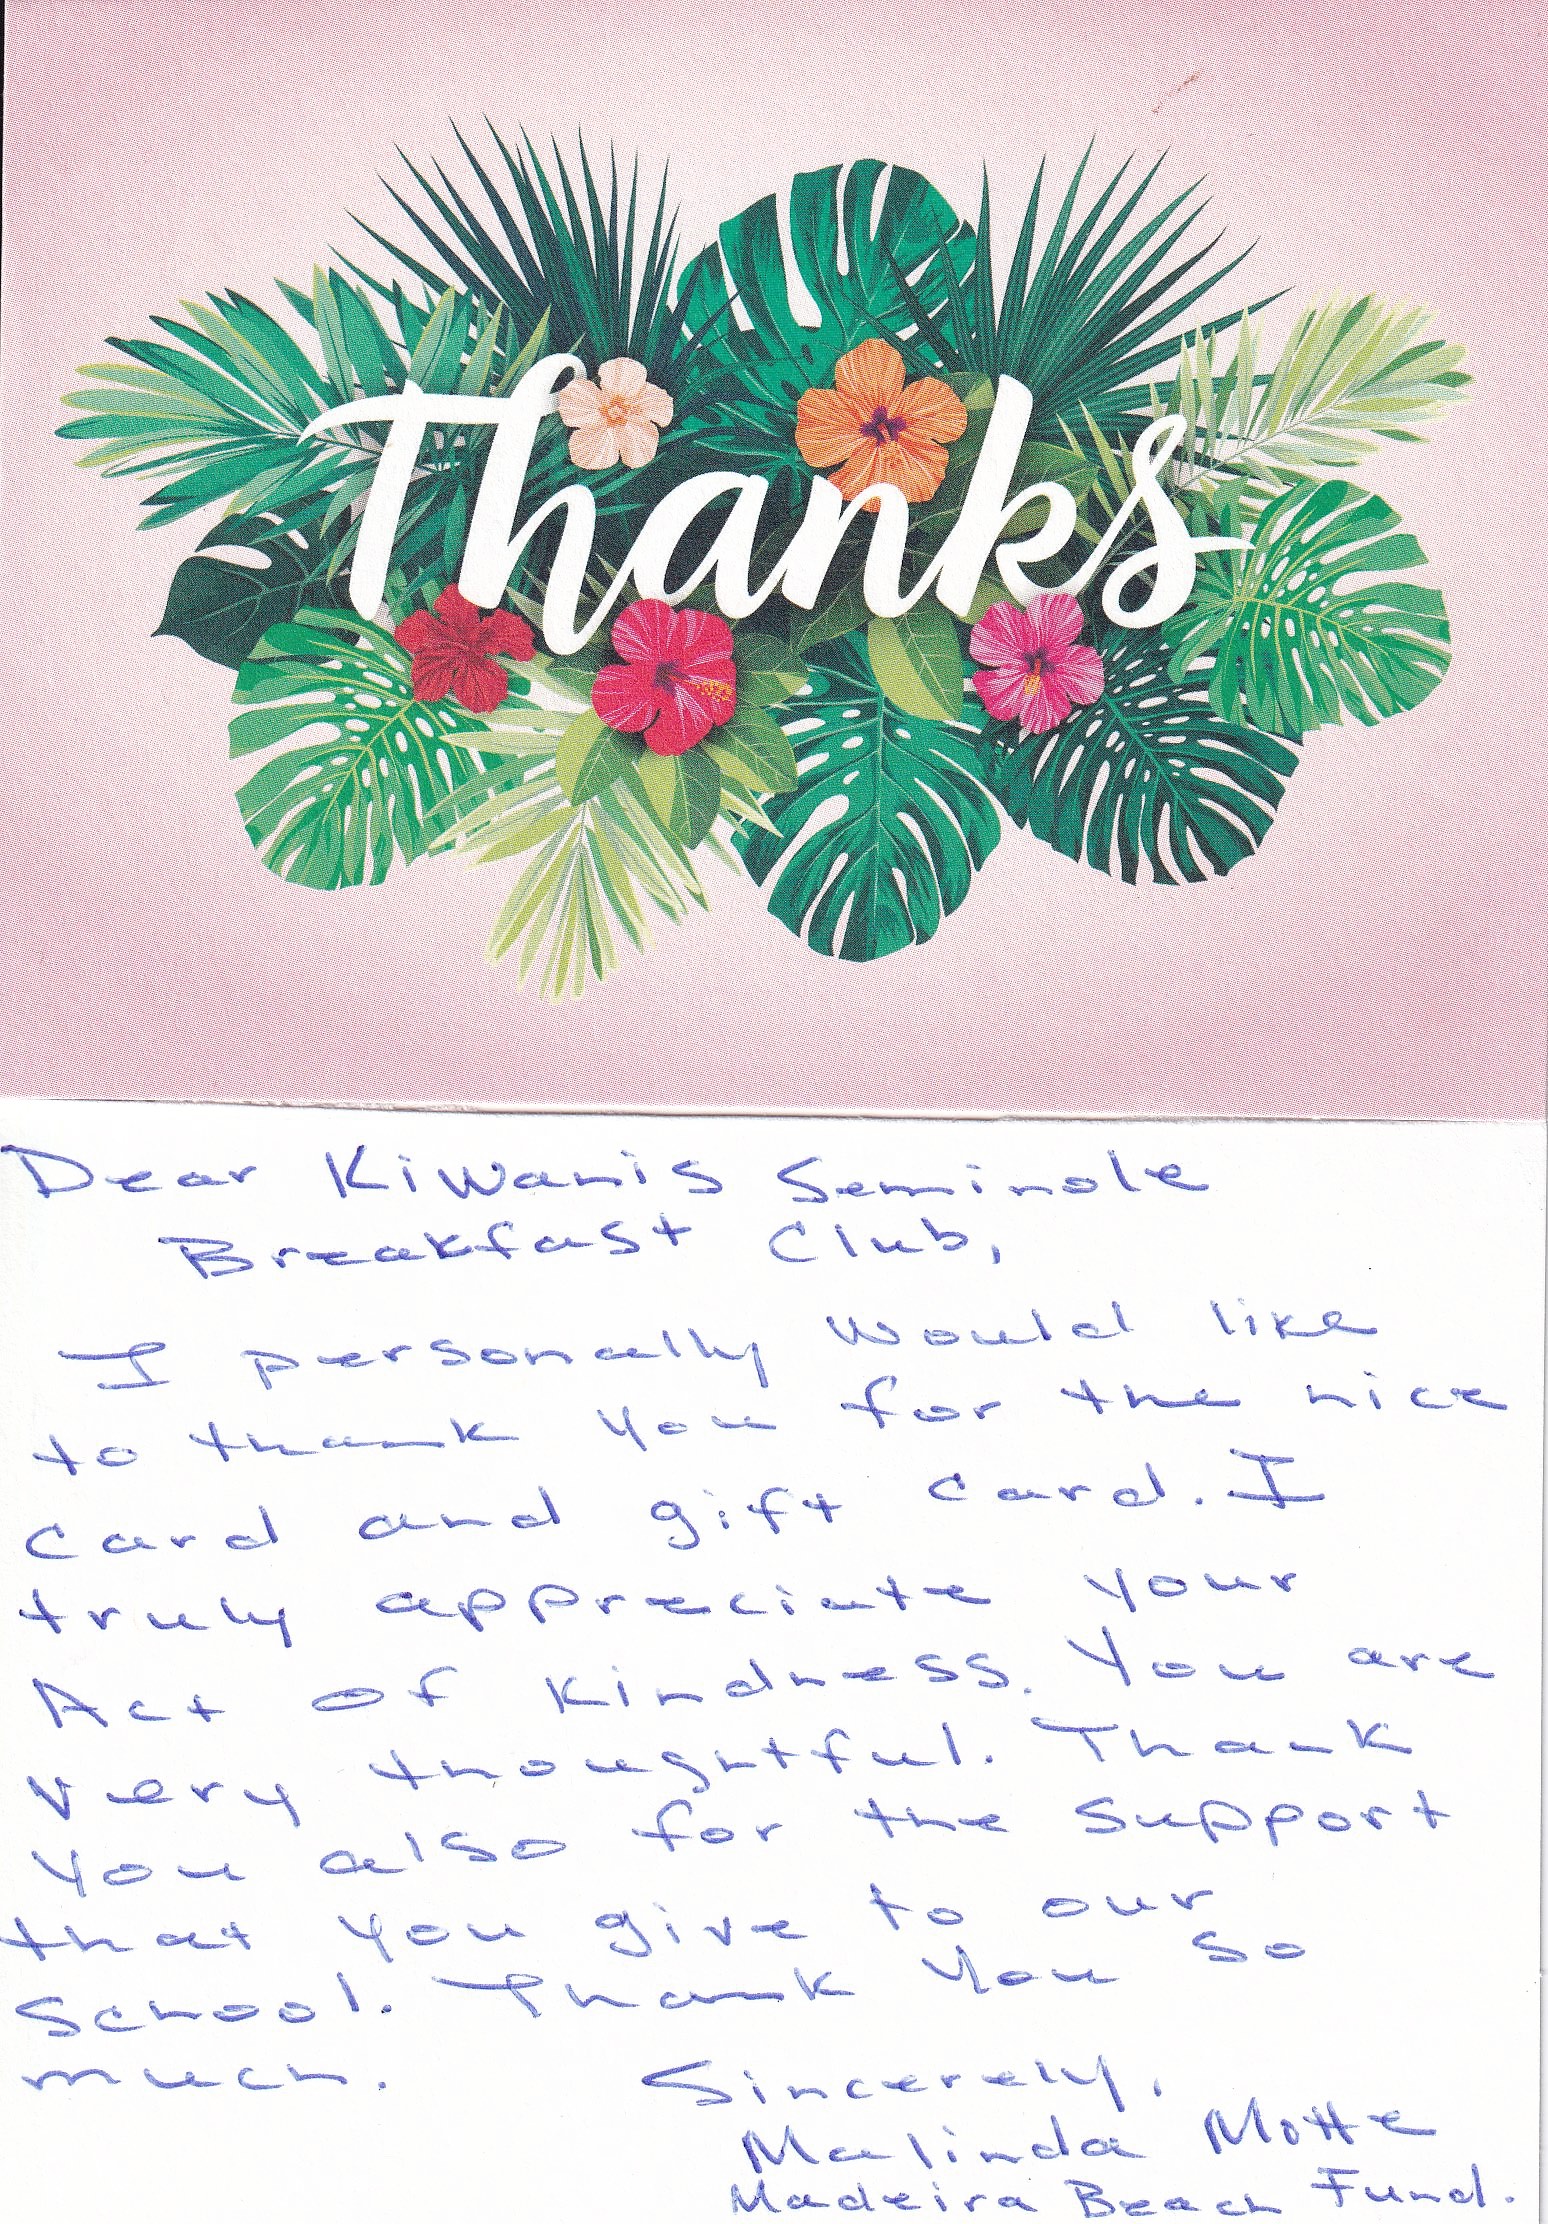 Thanks
Dear Kiwanis Seminole
Breakfast Club,
I personally would like
to thank you for the nice
card and gift card. I
truly appreciate your
Act of kindness. You are
very thoughtful. Thank
you also for the support
that you give to our
School. Thank you so
much.
Sincerely,
Malinda Motte
Madeira Beach Fund.